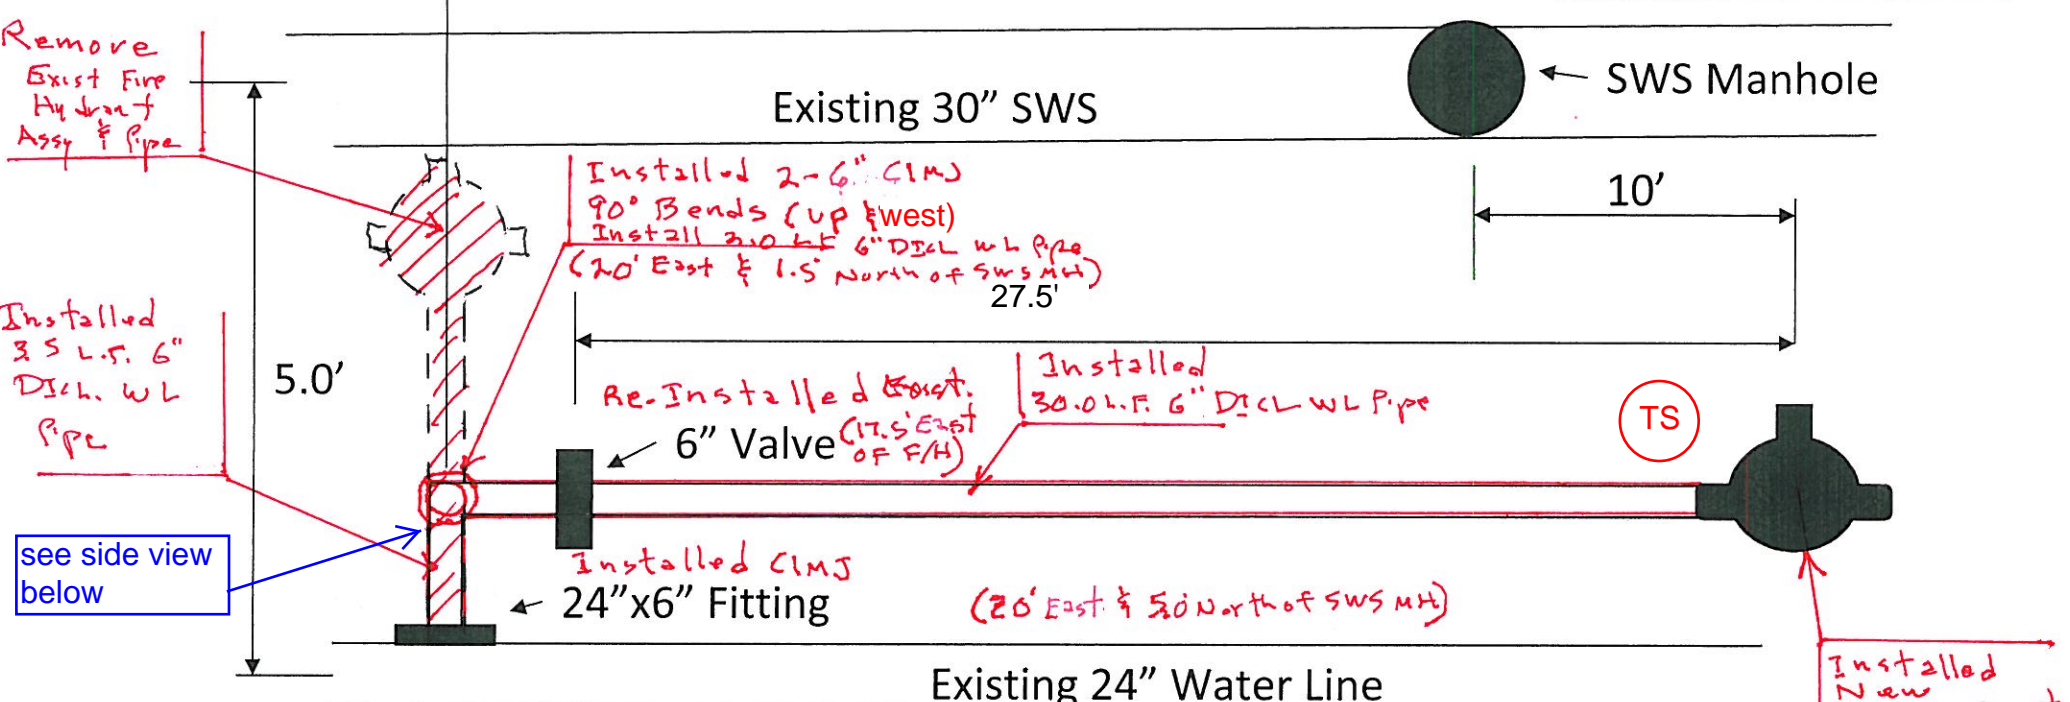 Remove
Exist Fire
Hydrant
Assy & Pipe
Existing 30” SWS
SWS Manhole
10’
Installed 2-6" CIMJ
90° Bends (up & west)
Install 2.0 LF 6" DICL WL Pipe
(20' East & 1.5' North of SWS MH)
27.5'
Installed
3.5 L.F. 6"
DICL. WL
Pipe
5.0’
Re-Installed Exist.
6” Valve
(17.5' East
OF F/H)
Installed
30.0 L.F. 6" DICL WL Pipe
TS
see side view
below
Installed CIMJ
24”x6” Fitting
(20' East & 5.0 North of SWS MH)
Existing 24” Water Line
Installed
New